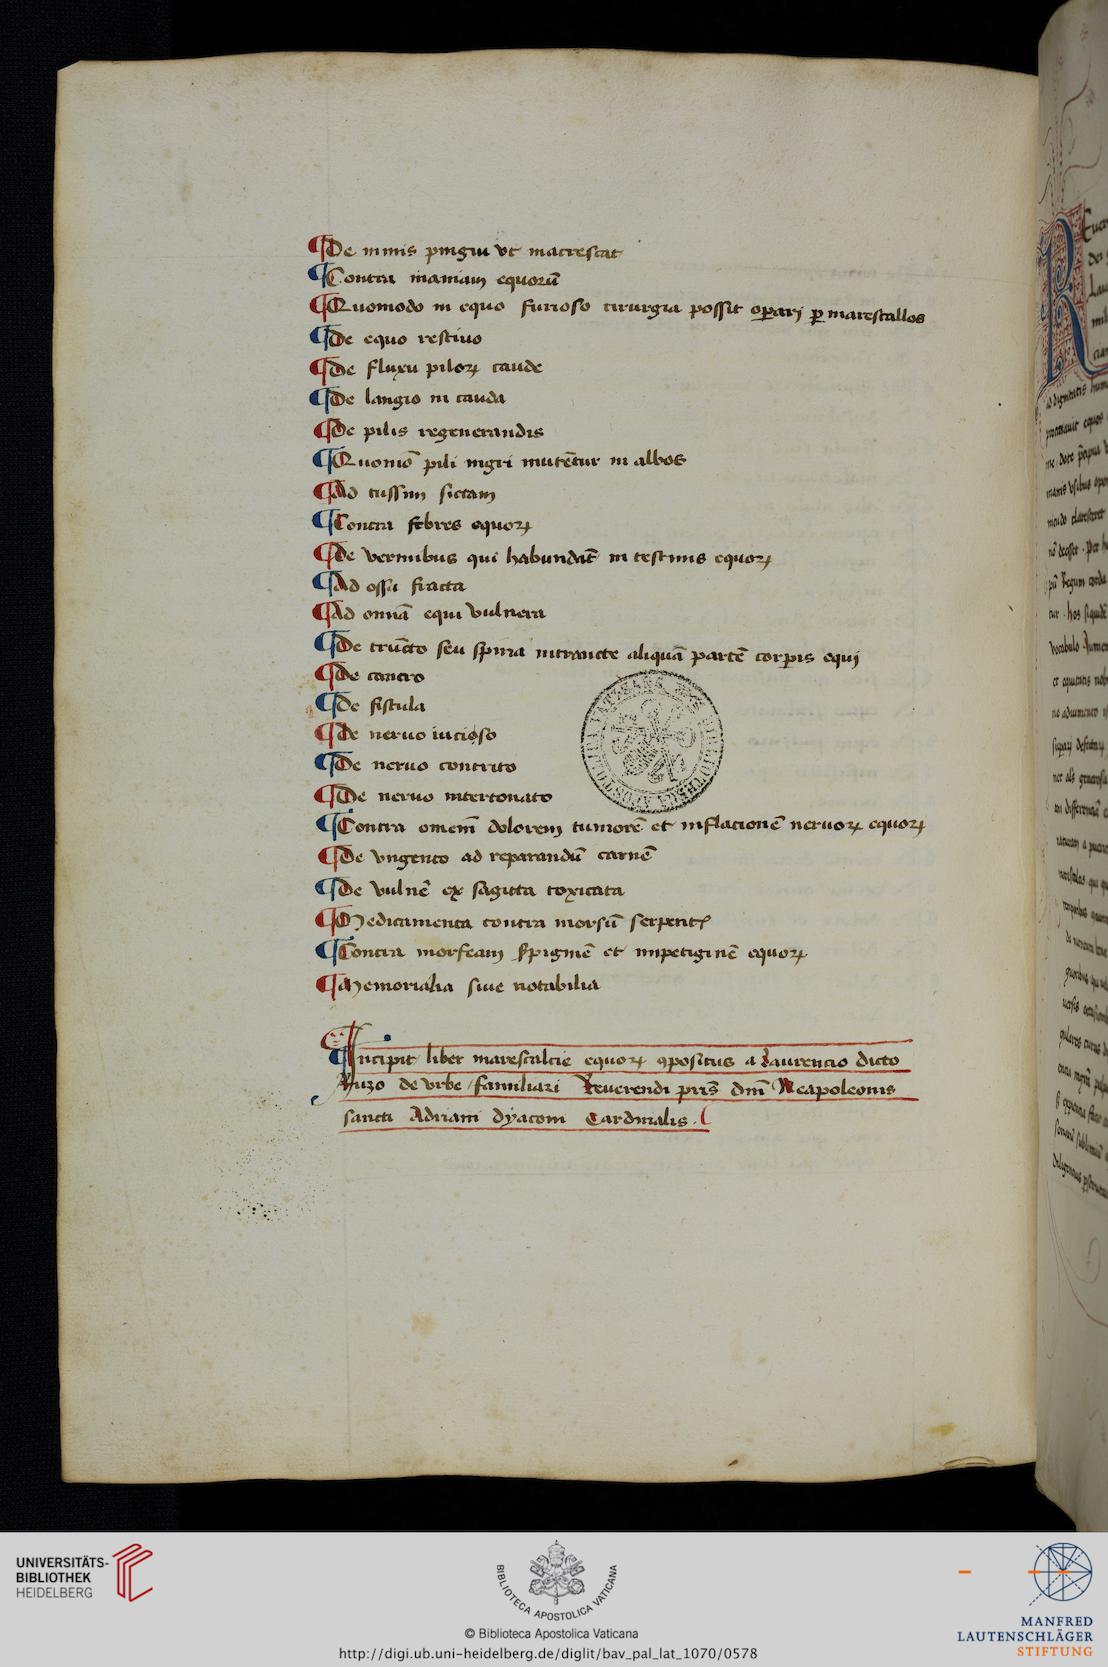 ¶De nimis pingui vt macrescat
¶Contra maniam equorū
¶Quomodo in equo furioso cirurgia possit oꝑari ꝑ marescallos
¶De equo restiuo
¶De fluxu piloꝝ caude
¶De langio in cauda
¶De pilis regenerandis
¶Quomō pili nigri mutētur in albos
¶Ad tussim siccam
¶Contra febres equoꝝ
¶De vermibus qui habundāt in testinis equoꝝ
¶Ad ossa fracta
¶Ad omnā equi vulnera
¶De trūcto seu spina intrancte aliquā partē corꝑis equi
¶De cancro
¶De fistula
¶De neruo inciso
¶De neruo contrito
¶De neruo intertonato
¶Contra omem̄ dolorem tumorē et inflacionē neruoꝝ equoꝝ
¶De vngento ad reparandū carnē
¶De vulnē ex sagitta toxicata
¶Medicamenta contra morsū serpentꝭ
¶Contra morfeam et impetiginē equoꝝ
¶Memorialia siue notabilia
¶Incipit liber marescalcie equoꝝ ꝯpositus a Laurencio dicto
Ruzo de vrbe familiari Reuerendi pr̄is dn̄i Neapoleonis
sancti Adriani dyaconi Cardinalis.
UNIVERSITÄTS-
BIBLIOTHEK
HEIDELBERG
BIBLIOTECA APOSTOLICA VATICANA
© Biblioteca Apostolica Vaticana
http://digi.ub.uni-heidelberg.de/diglit/bav_pal_lat_1070/0578
MANFRED
LAUTENSCHLÄGER
STIFTUNG